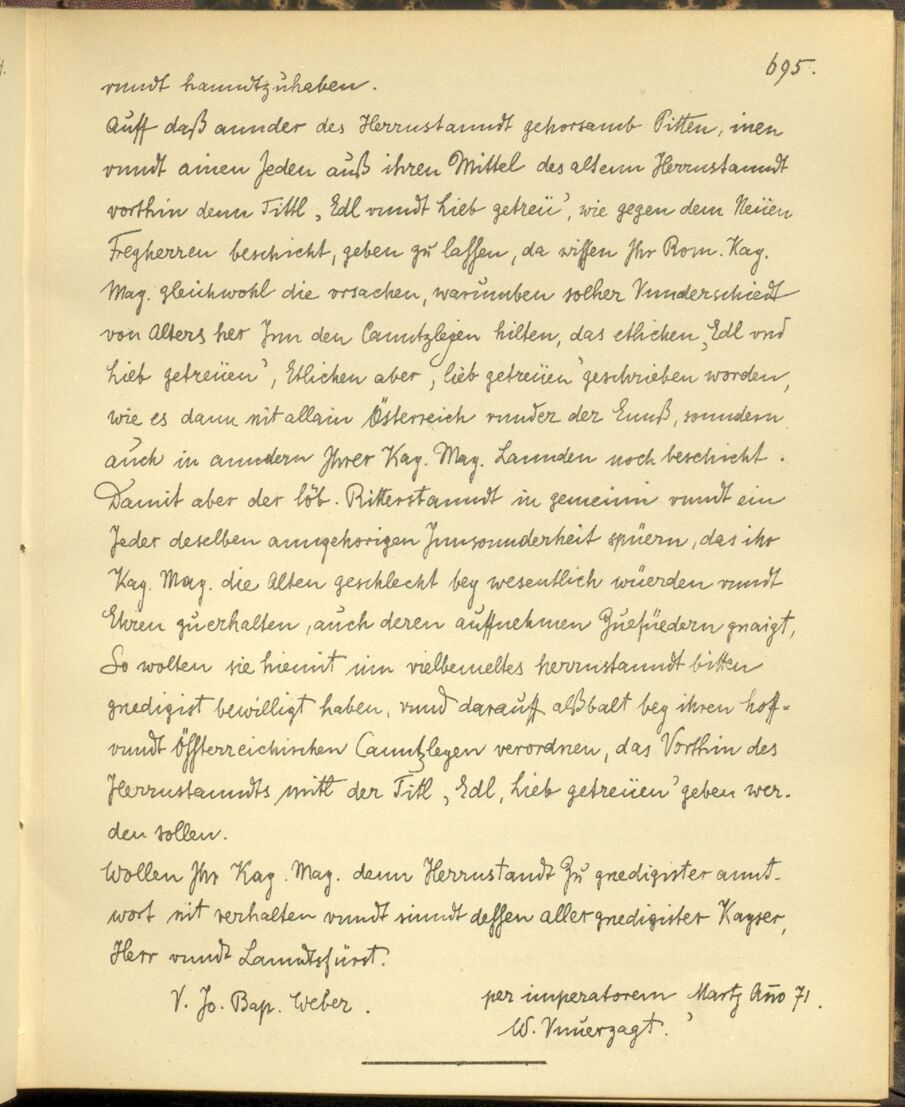 695.
vnndt hanndtzuhaben.
Auff daß annder des Herrnstanndt gehorsamb Pitten, inen
vnndt ainen Jeden auß ihren Mittel des altenn Herrnstanndt
vorthin denn Tittl „Edl vnndt Lieb getreü", wie gegen dem Neüen
Freyherren beschicht, geben zu lassen, da wissen Ihr Rom. Kay.
May. gleichwohl die vrsachen, warumben solher Vnnderschiedt
von Alters her Inn den Canntzleyen hilten, das etlichen „Edl vnd
Lieb getreüen", Etlichen aber „lieb getreüen" geschrieben worden,
wie es dann nit allain Österreich vnnder der Ennß, sonndern
auch in anndern Ihrer Kay. May. Lannden noch beschicht.
Damit aber der löb. Ritterstanndt in gemeinn vnndt ein
Jeder deselben anngehorigen Innsonnderheit spüern, das ihr
Kay. May. die Alten geschlecht bey wesentlich wüerden vnndt
Ehren zu erhalten, auch deren auffnehmen Zuefüedern gnaigt,
So wolten sie hiemit inn vielbemeltes herrnstanndt bitten
gnedigist bewilligt haben, vnnd darauff alßbalt bey ihren hoff-
vnndt Össterreichischen Canntzleyen verordnen, das Vorthin des
Herrnstanndts mitl der Titl „Edl, Lieb getreüen" geben wer-
den sollen.
Wollen Ihr Kay. May. denn Herrnstandt Zu gnedigister annt-
wort nit verhalten vnndt sinndt dessen allergnedigister Kayser,
Herr vnndt Lanndtsfürst.
V. Jo. Bap. Weber.
per imperatorem Martz Año 71.
W. Vnuerzagt.